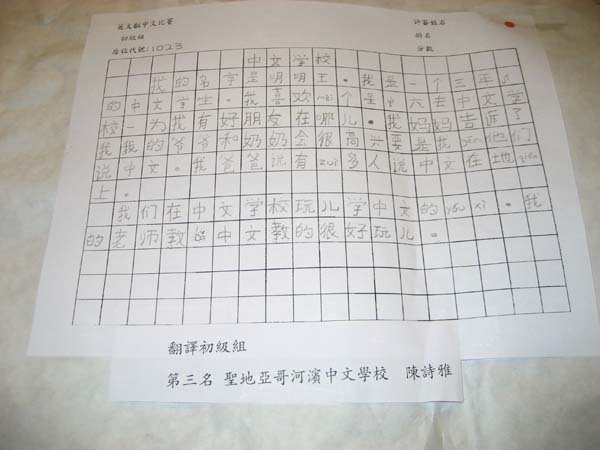 英文翻中文比賽
評審姓名
初級組
座位代號:1023
分數
中文学校
我的名字是明明王。我是一个三年
的中文学生。我喜欢měi个星 六去中文学
校一为我有好朋友在哪儿。我妈妈告诉了
我我的爷爷和奶奶会很高六要是我 他们
说中文。我爸爸说有zuì多人说中文在地
上。
我们在中文学校玩儿学中文的yóu xì。我
的老师教 中文教的很好玩儿。
翻譯初級組
第三名 聖地亞哥河濱中文學校 陳詩雅